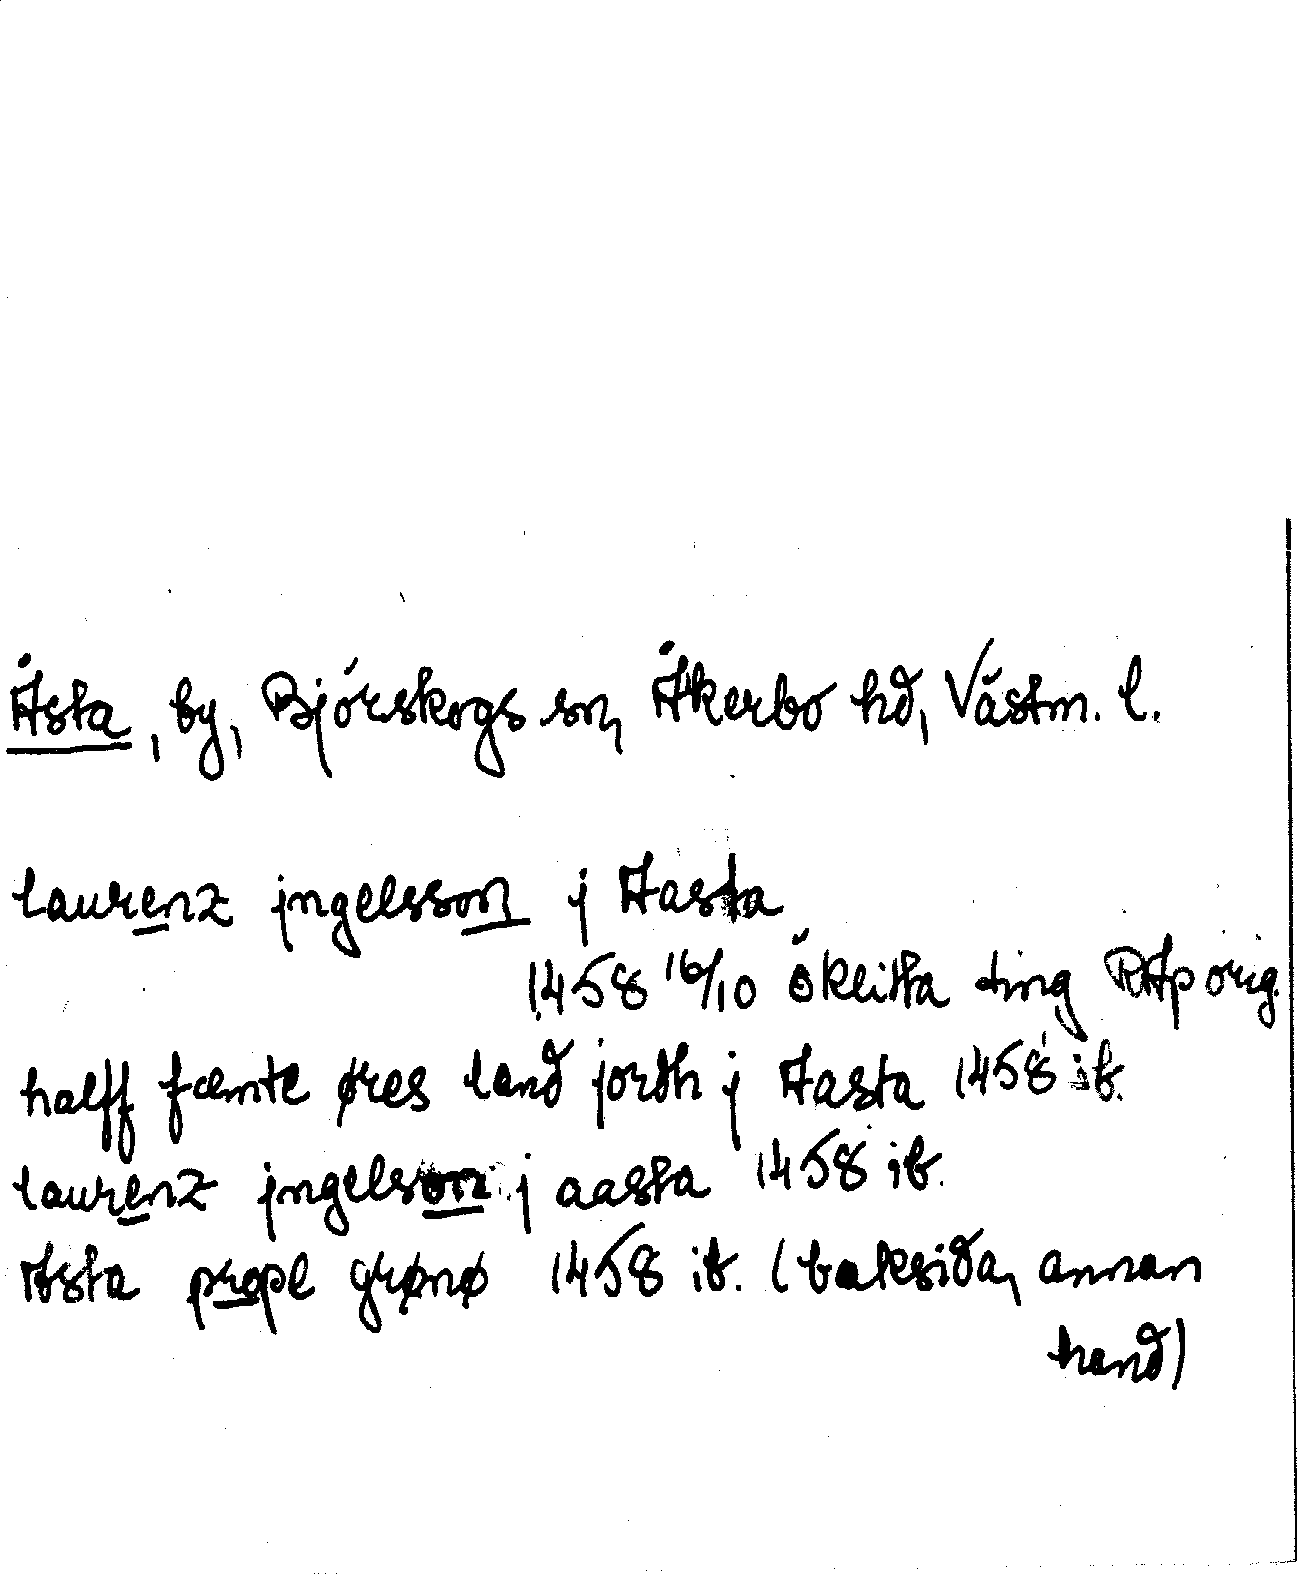 Åsta, by, Björskogs sn, Åkerbo hd, Västm. l.
laurenz jngelsson j Aasta
1458 16/10 ting RAp orig.
halff femte øres land jordh j Aasta 1458 ib.
laurenz jngelson j aasta 1458 ib.
Asta prope grønø 1458 ib. (baksida, annan
hand)